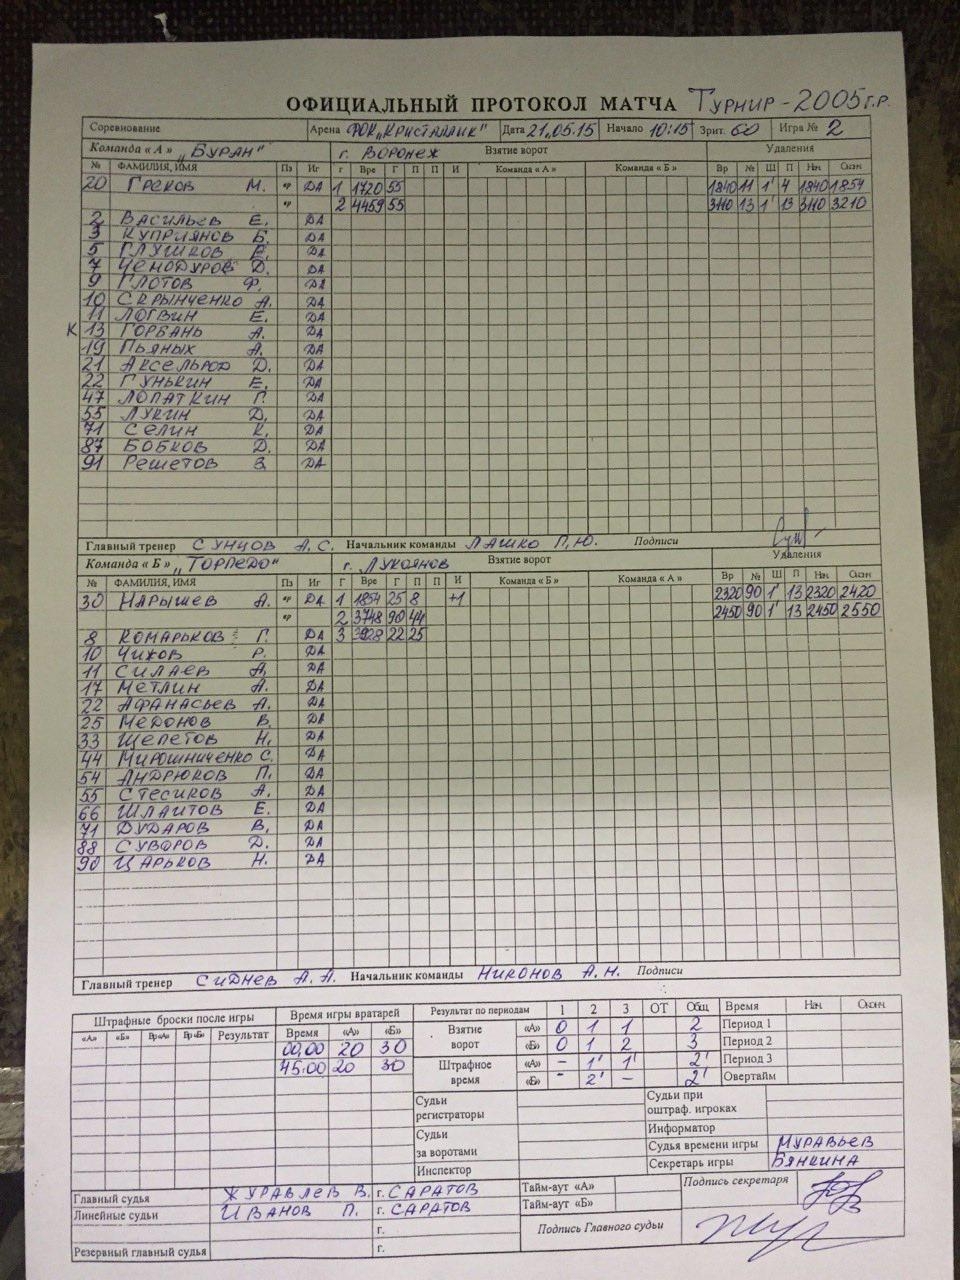 ОФИЦИАЛЬНЫЙ ПРОТОКОЛ МАТЧА Турнир - 2005 г.р.
Соревнование Арена ФОК „Кристаллик" Дата 21.05.15 Начало 10:15 Зрит. 60 Игра № 2
Команда «А» „Буран" г. Воронеж Взятие ворот Удаления
№ ФАМИЛИЯ, ИМЯ Пз Иг Г Вре Г П П И Команда «А» Команда «Б» Вр № Ш П Нач Окон
20 Греков М. вр ДА 1 1720 55 1840 11 1' 4 1840 1854
вр 2 4459 55 3110 13 1' 13 3110 3210
2 Васильев Е. ДА
3 Куприянов Б. ДА
5 Глушков Е. ДА
7 Ченодуров Д. ДА
9 Глотов Ф. ДА
10 Скрынченко А. ДА
11 Логвин Е. ДА
К 13 Горбань А. ДА
19 Пьяных А. ДА
21 Аксельрод Д. ДА
22 Гунькин Е. ДА
47 Лопаткин Г. ДА
55 Лукин Д. ДА
71 Селин К. ДА
87 Бобков Д. ДА
91 Решетов В. ДА
Главный тренер Сунцов А.С. Начальник команды Лашко П.Ю. Подписи
Команда «Б» „Торпедо" г. Лукоянов Взятие ворот Удаления
№ ФАМИЛИЯ, ИМЯ Пз Иг Г Вре Г П П И Команда «Б» Команда «А» Вр № Ш П Нач Окон
30 Нарышев А. вр ДА 1 1854 25 8 +1 2320 90 1' 13 2320 2420
вр 2 3748 90 44 2450 90 1' 13 2450 2550
8 Комарьков Г. ДА 3 3928 22 25
10 Чижов Р. ДА
11 Силаев Д. ДА
17 Метлин А. ДА
22 Афанасьев А. ДА
25 Медонов В. ДА
33 Щепетов Н. ДА
44 Мирошниченко С. ДА
54 Андрюков П. ДА
55 Стесиков А. ДА
66 Шлаитов Е. ДА
71 Дударов В. ДА
88 Суворов Д. ДА
90 Царьков Н. ДА
Главный тренер Сиднев А.А. Начальник команды Никонов А.Н. Подписи
Штрафные броски после игры Время игры вратарей Результат по периодам 1 2 3 ОТ Общ Время Нач. Оконч.
«А» «Б» Вр«А» Вр«Б» Результат Время «А» «Б» Взятие ворот «А» 0 1 1 2 Период 1
00.00 20 30 «Б» 0 1 2 3 Период 2
45:00 20 30 Штрафное время «А» - 1' 1' 2' Период 3
«Б» - 2' - 2' Овертайм
Судьи регистраторы Судьи при оштраф. игроках
Информатор
Судьи за воротами Судья времени игры Муравьев
Инспектор Секретарь игры Бянкина
Главный судья Журавлев В. г. Саратов Тайм-аут «А» Подпись секретаря
Линейные судьи Иванов П. г. Саратов Тайм-аут «Б»
г. Подпись Главного судьи
Резервный главный судья г.